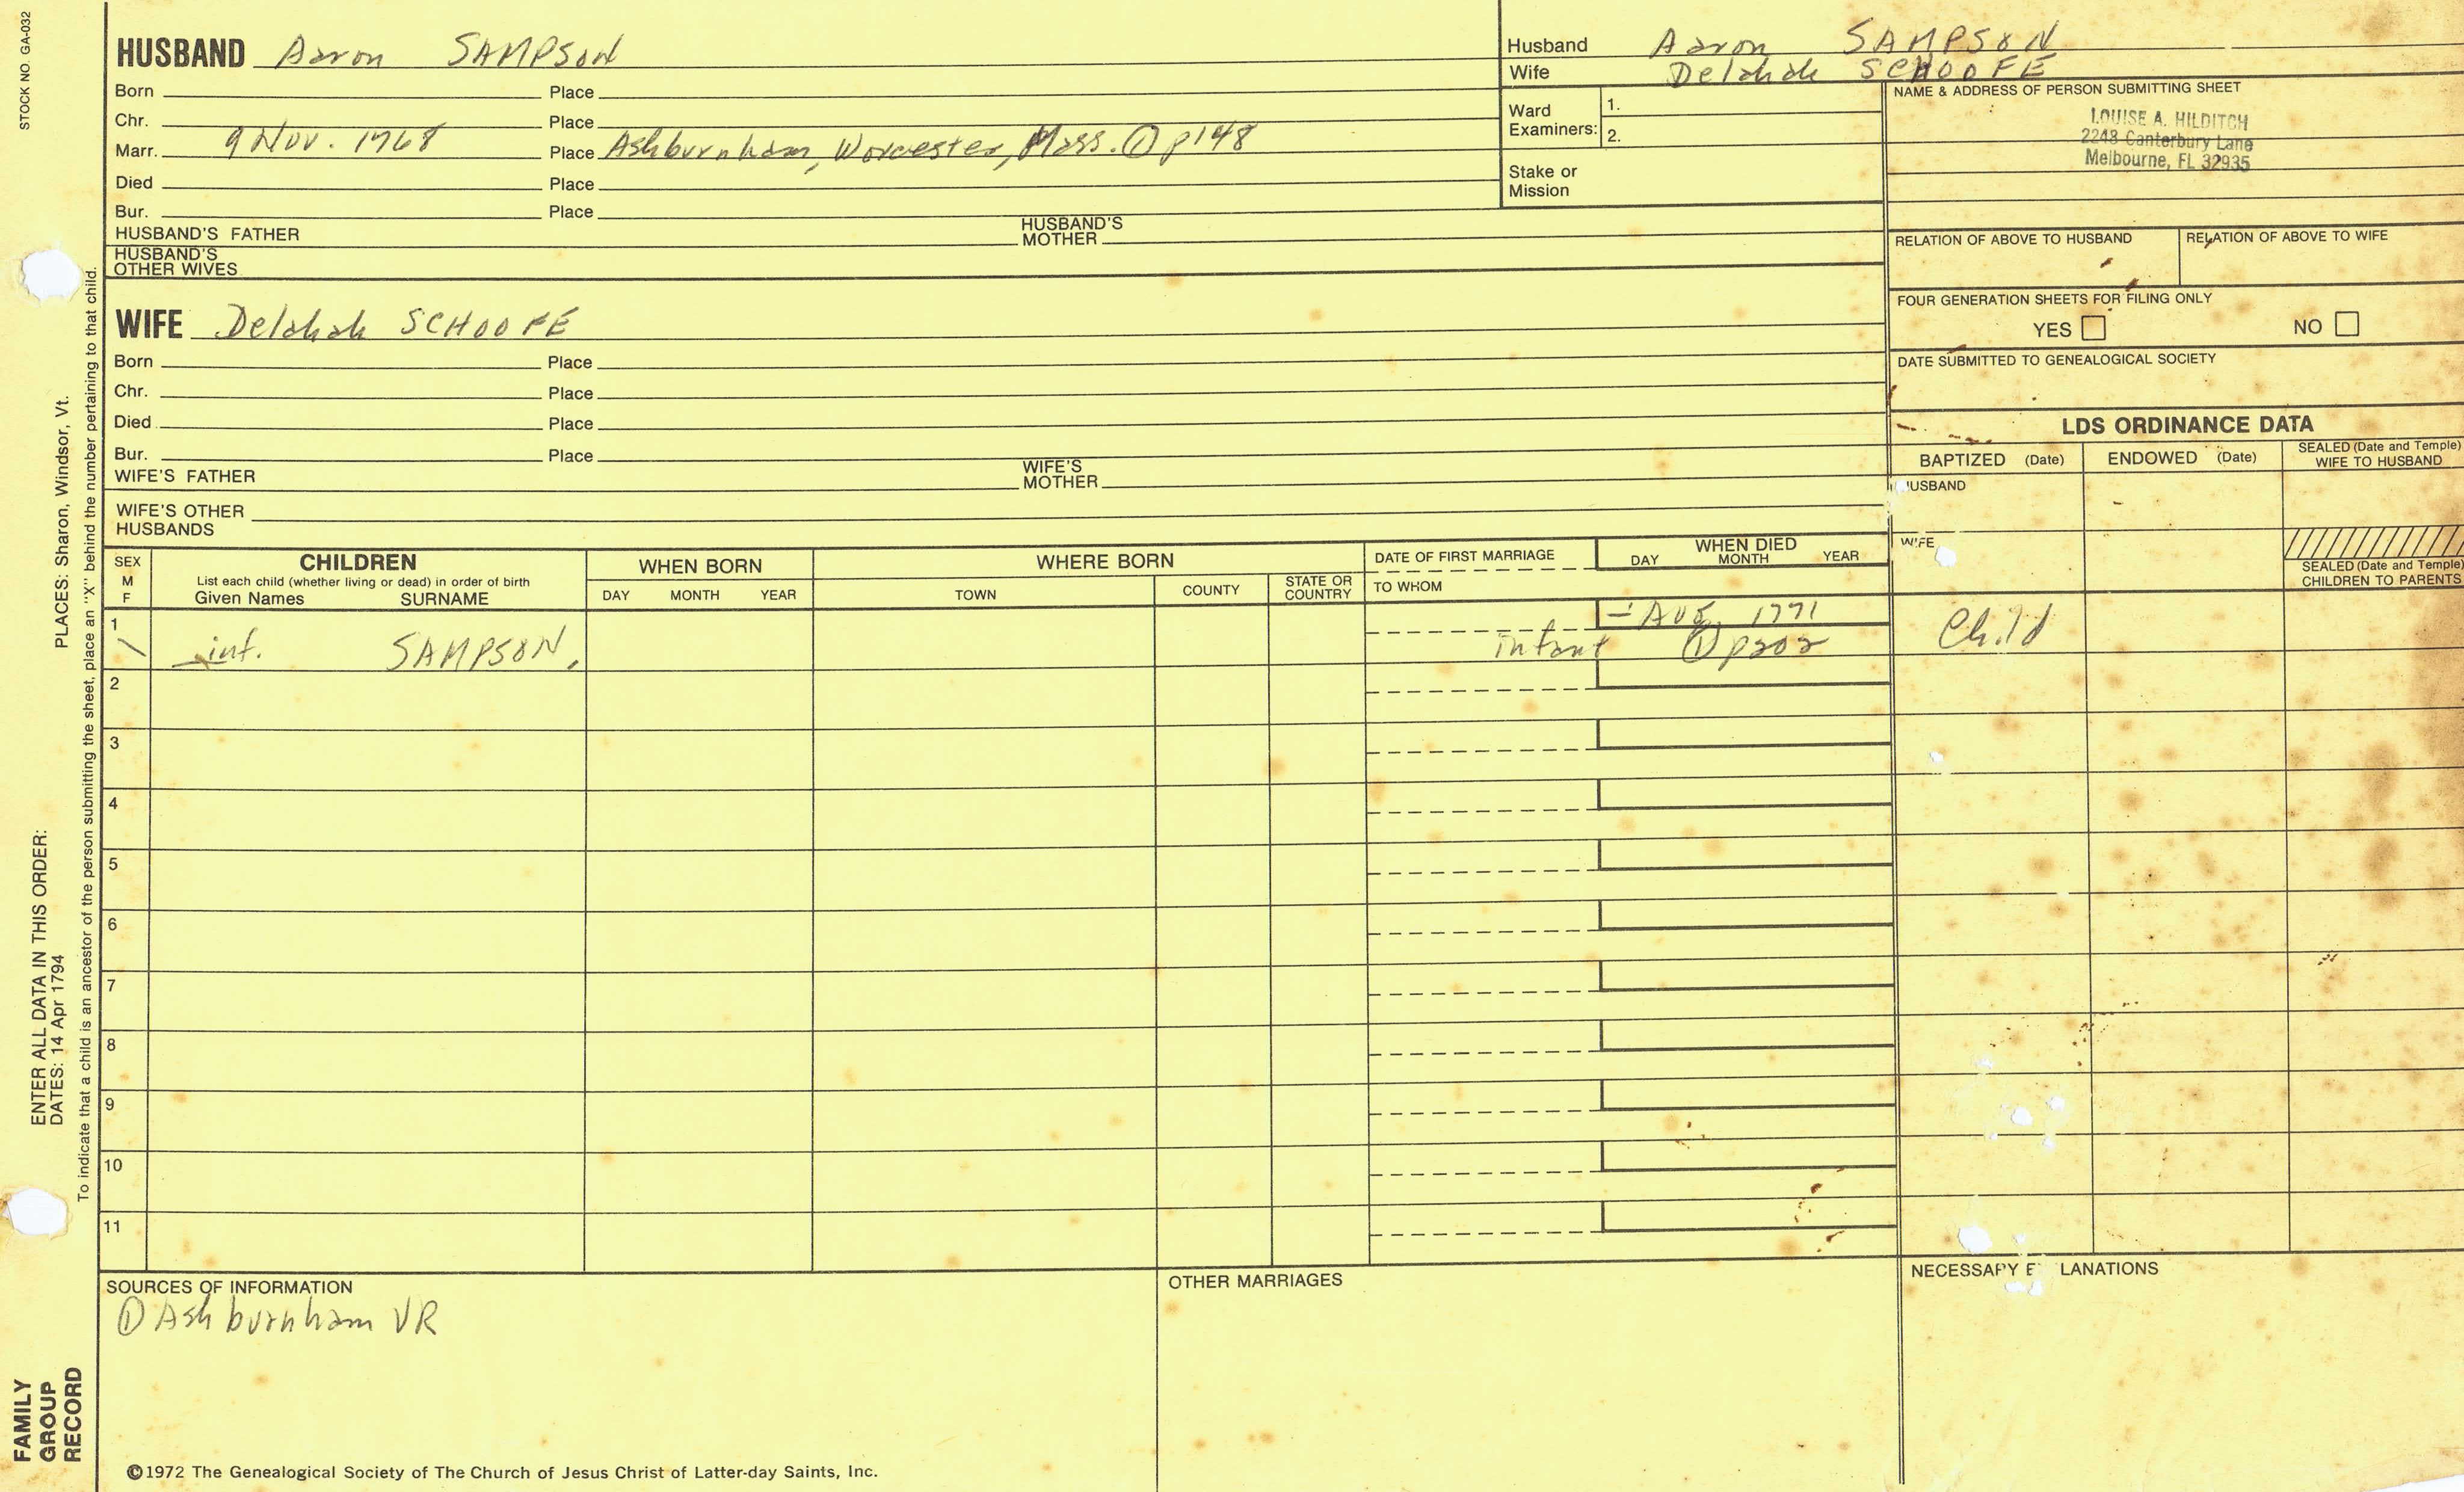 STOCK NO. GA-032
HUSBAND Aaron SAMPSON
Born Place
Chr. Place
Marr. 9 Nov. 1768 Place Ashburnham, Worcester, Mass. ① p148
Died Place
Bur. Place
HUSBAND'S FATHER HUSBAND'S MOTHER
HUSBAND'S
OTHER WIVES
Husband Aaron SAMPSON
Wife Delahah SCHOOFE
Ward
Examiners:
1.
2.
Stake or
Mission
NAME & ADDRESS OF PERSON SUBMITTING SHEET
LOUISE A. HILDITCH
2248 Canterbury Lane
Melbourne, FL 32935
RELATION OF ABOVE TO HUSBAND RELATION OF ABOVE TO WIFE
FOUR GENERATION SHEETS FOR FILING ONLY
YES NO
DATE SUBMITTED TO GENEALOGICAL SOCIETY
WIFE Delahah SCHOOFE
Born Place
Chr. Place
Died Place
Bur. Place
WIFE'S FATHER WIFE'S MOTHER
WIFE'S OTHER
HUSBANDS
LDS ORDINANCE DATA
BAPTIZED (Date) ENDOWED (Date) SEALED (Date and Temple)
WIFE TO HUSBAND
USBAND
WIFE
SEALED (Date and Temple)
CHILDREN TO PARENTS
SEX
M
F
CHILDREN
List each child (whether living or dead) in order of birth
Given Names SURNAME
WHEN BORN
DAY MONTH YEAR
WHERE BORN
TOWN COUNTY STATE OR
COUNTRY
DATE OF FIRST MARRIAGE
TO WHOM
WHEN DIED
DAY MONTH YEAR
1 - AUG. 1771
\ inf. SAMPSON. infant ① p202 Child
2
3
4
5
6
7
8
9
10
11
SOURCES OF INFORMATION
① Ashburnham VR
OTHER MARRIAGES
NECESSARY E LANATIONS
©1972 The Genealogical Society of The Church of Jesus Christ of Latter-day Saints, Inc.
FAMILY
GROUP
RECORD
ENTER ALL DATA IN THIS ORDER:
DATES: 14 Apr 1794 PLACES: Sharon, Windsor, Vt.
To indicate that a child is an ancestor of the person submitting the sheet, place an "X" behind the number pertaining to that child.